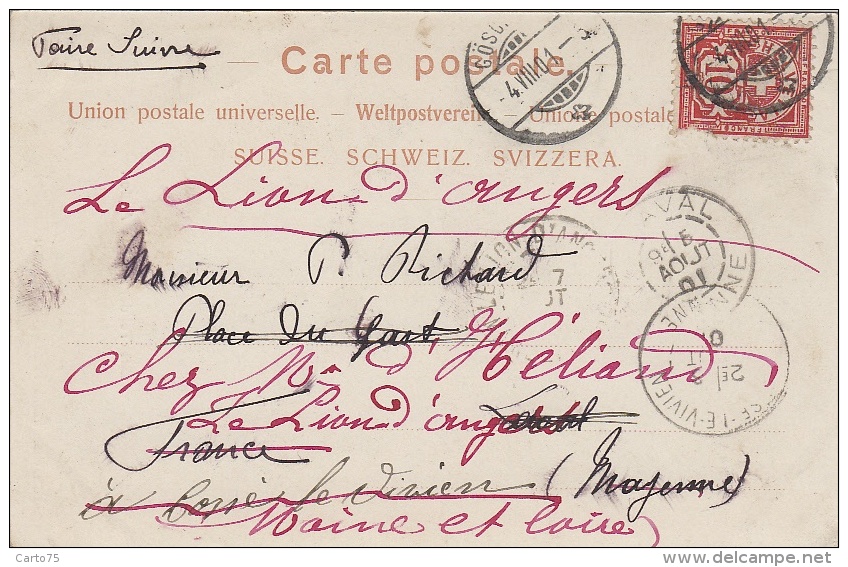 Faire Suivre
Carte postale.
Union postale universelle. – Weltpostverein. – Unione postale
SUISSE. SCHWEIZ. SVIZZERA.
GÖSC
-4.VIII.01.-5
10
FRANCO
Le Lion d'angers
LAVAL
5
AOUT
01
LE LION D'ANG
7
Monsieur P. Richard
Place du
Chez Mr d'Héliand
Le Lion d'angers
Laval
France
à Cossé le Vivien (Mayenne)
Maine et Loire
LE-VIVIEN
2E
Carto75
delcampe.net